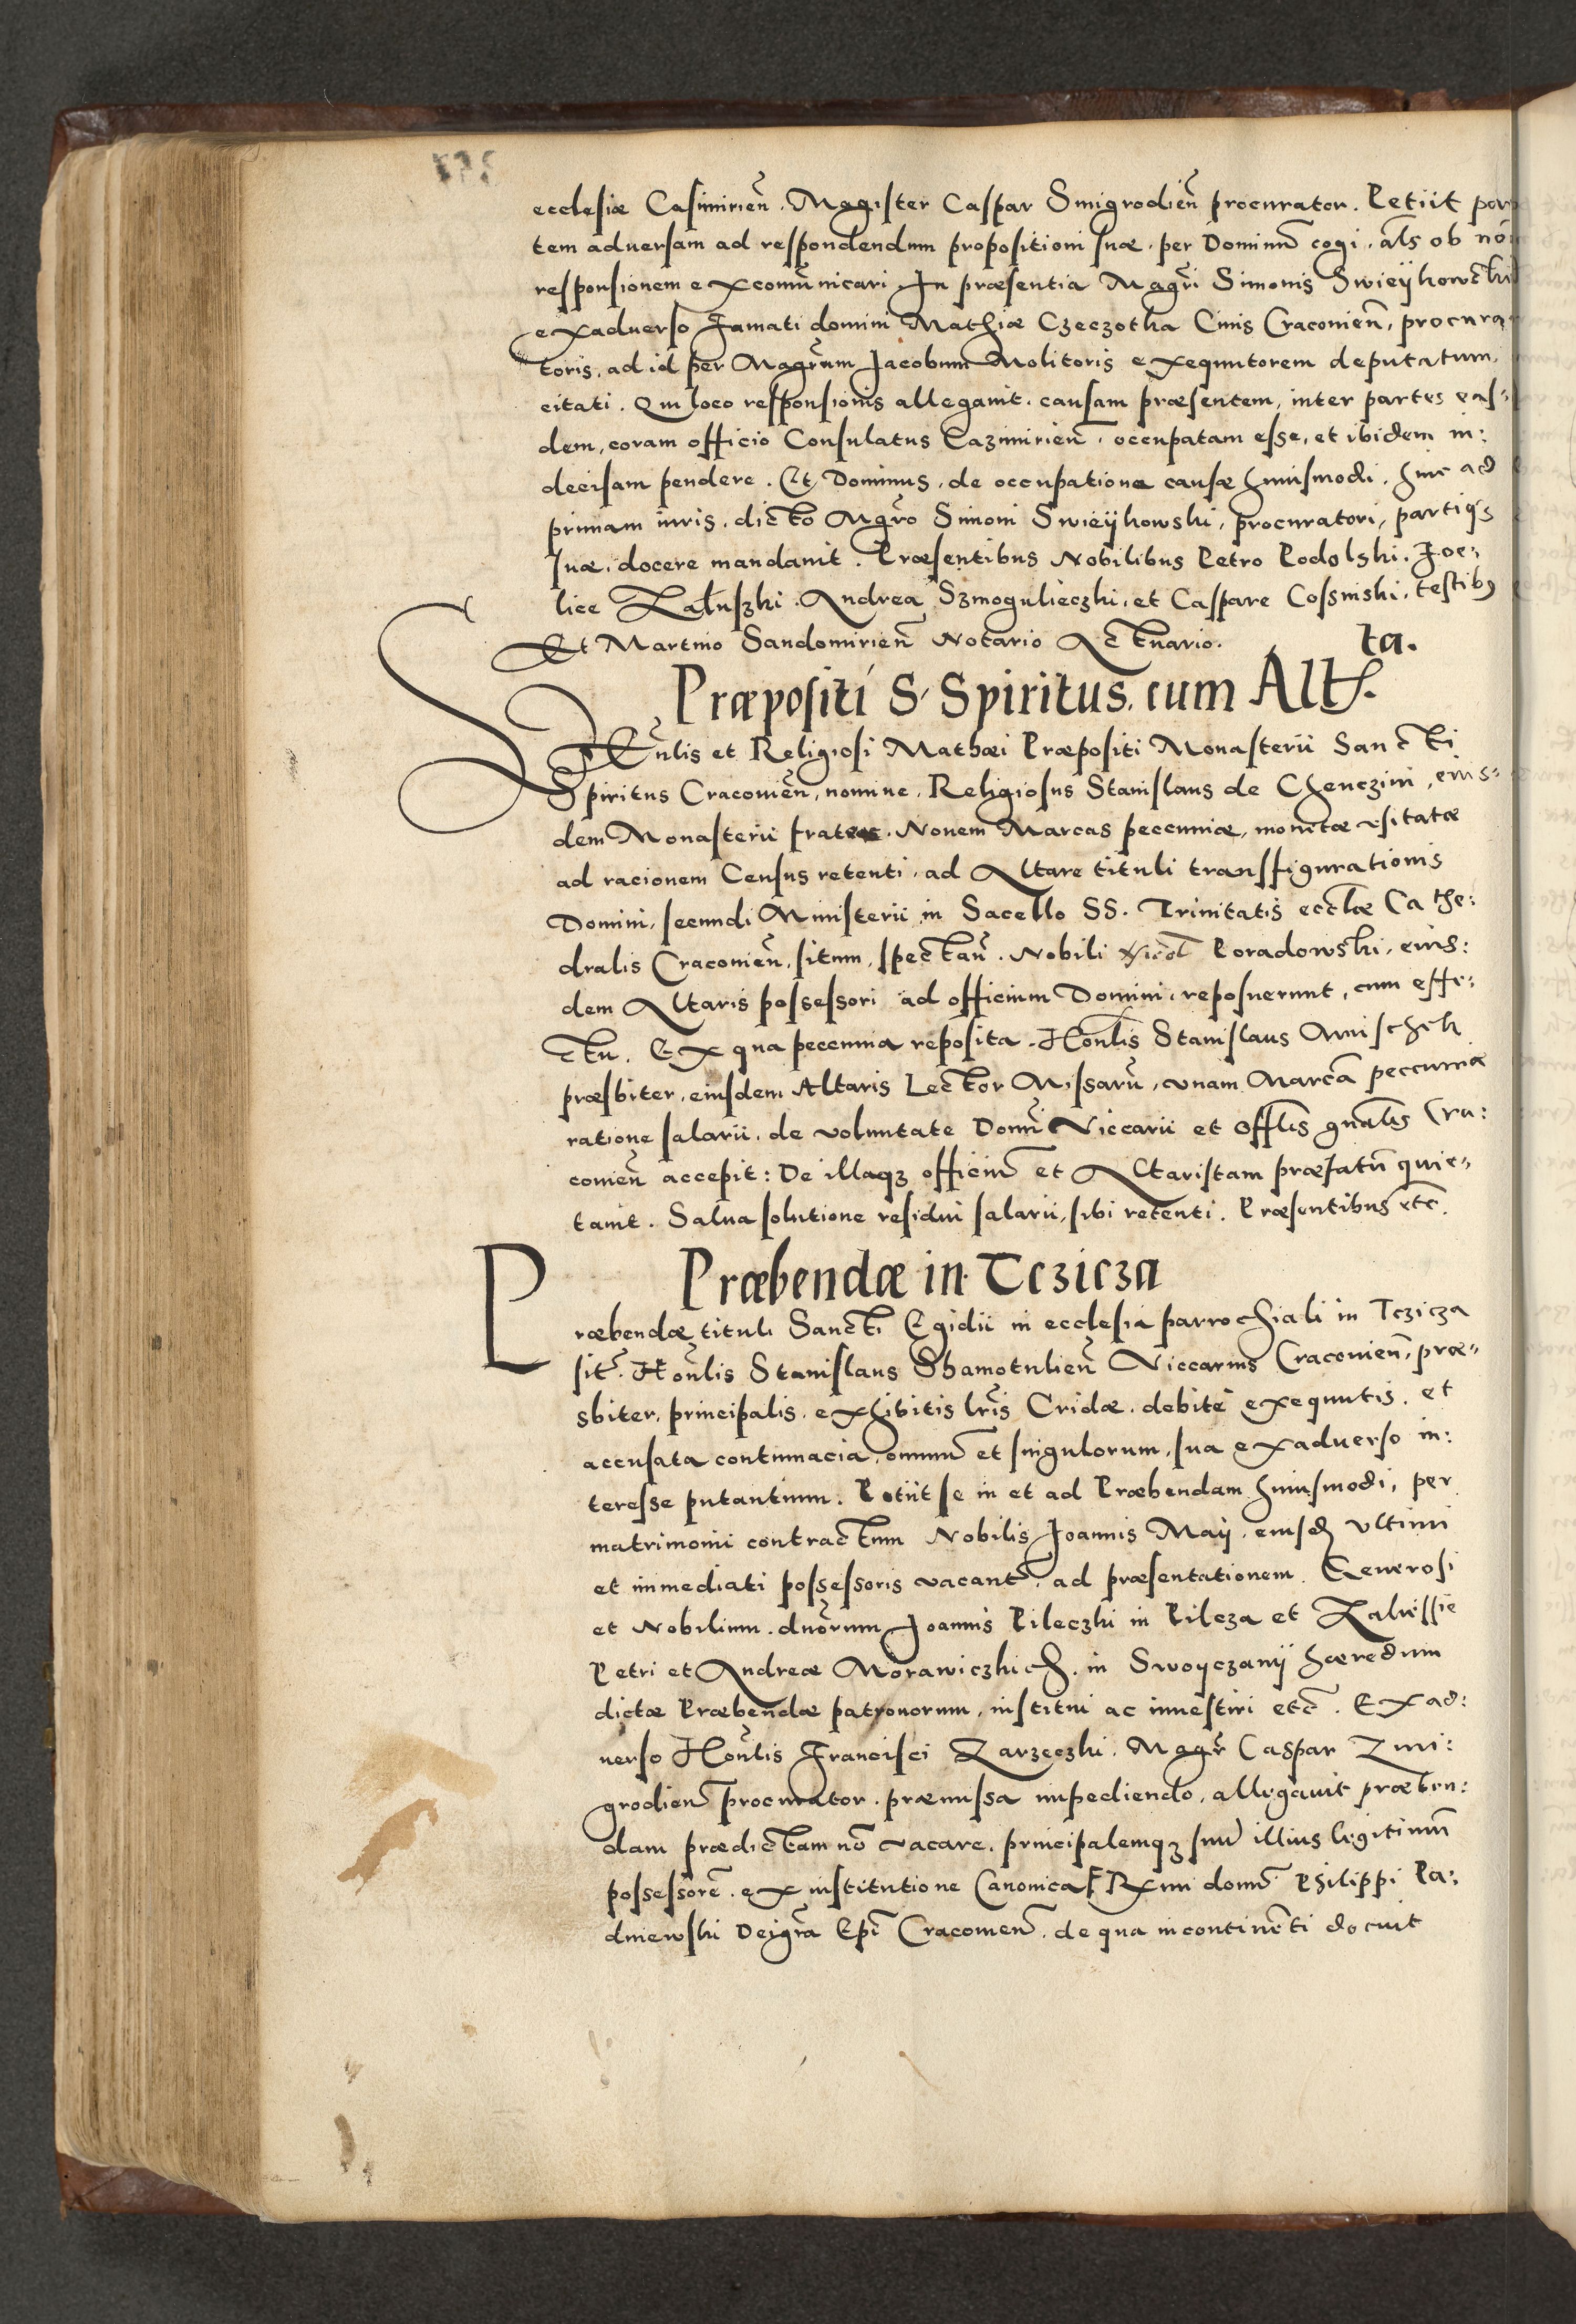 ecclesiæ Casimirien̄. Magister Caspar Smigrodien̄ procurator. Petiit par
tem aduersam ad respondendum propositioni suæ. per Dominū cogi. al̄s ob nō
responsionem excomūnicari. In præsentia Magr̄i Simonis Swieyhowski
exaduerso famati domini Mathiæ Czeczotha Ciuis Cracouien̄, procura
toris, ad id per Magr̄um Jacobum Molitoris exequutorem deputatum,
citati. Qui loco responsionis allegauit. causam præsentem, inter partes eas⸗
dem, coram officio Consulatus Cazimirien̄. occupatam esse, et ibidem in:
decisam pendere. Et Dominus, de occupatione causæ huiusmodi, hinc ad
primam iuris, dicto Mgr̄o Simoni Swieyhowski, procuratori, partiqꝫ
suæ, docere mandauit. Præsentibus Nobilibus Petro Podolski. Foe⸗
lice Załuszki. Andrea Szmogulieczki, et Caspare Cossinski, testibꝰ
Et Martino Sandomirien̄ Notario Actuario.
Præpositi S. Spiritus, cum Alt̄.
ta.
Vēnlis et Religiosi Mathæi Præpositi Monasterii Sancti
Spiritus Cracouien̄, nomine, Religiosus Stanislaus de Chenczini, eius⸗
dem Monasterii frater. Nouem Marcas peccuniæ, monetæ vsitatæ
ad racionem Census retenti, ad Altare tituli transfigurationis
Domini, secundi Ministerii in Sacello SS. Trinitatis eccl̄æ Cathe:
dralis Cracouien̄, situm, spectan̄. Nobili Nicol̄ Poradowski, eius:
dem Altaris possessori ad officium Domini, reposuerunt, cum effe:
ctu. Ex qua peccunia reposita. Hon̄lis Stanislaus
præsbiter, eiusdem Altaris Lector Missarū, vnam Marcā peccuniæ
ratione salarii, de voluntate Domī Viccarii et Offl̄is gn̄alis Cra:
couien̄ accepit: De illaqꝫ officiū et Altaristam præfatū quie⸗
tauit. Salua solutione residui salarii, sibi retenti. Præsentibus etc̄.
Præbendæ in Tczicza
Præbendæ tituli Sancti Egidii in ecclesia parrochiali in Tczicza
sit̄. Hon̄lis Stanislaus Shamotulien̄ Viccarius Cracouien̄, præ⸗
sbiter, principalis, exhibitis lr̄is Cridæ, debite exequutis, et
accusata contumacia, omniū et singulorum, sua exaduerso in:
teresse putantium. Petiit se in et ad Præbendam huiusmodi, per
matrimonii contractum Nobilis Joannis May, eiusd̄ vltimi
et immediati possessoris vacant̄, ad præsentationem Generosi
et Nobilium. dn̄orum Joannis Pileczki in Pilcza et Zalvissie
Petri et Andreæ Morawiczkich. in Swoyczanij hæredum
dictæ Præbendæ patronorum, institui ac inuestiri etc̄. Ex ad:
uerso Hon̄lis Francisci Zarzeczki. Magr̄ Caspar Zmi:
grodien̄ procurator. præmissa impediendo, allegauit præben:
dam prædictam nō vacare, principalemqꝫ suū illius legitimū
possessorē. ex institutione Canonica Rx̄mi domī Philippi Pa:
dniewski Dei gr̄a Ep̄i Cracouien̄. de qua incontinēti docuit